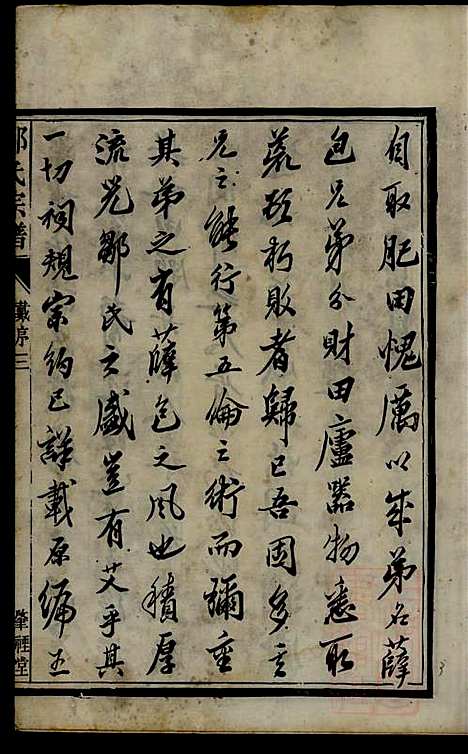 自取肥田愧厲以成弟名薛
包兄弟分財田廬器物悉取
荒頓朽敗者歸己吾固多之
兄之能行第五倫之術而彌重
其弟之有薛包之風也積厚
流光鄒氏之盛豈有艾乎其
一切祠規宗約已詳載原編五
氏宗譜
序三
肇禋堂